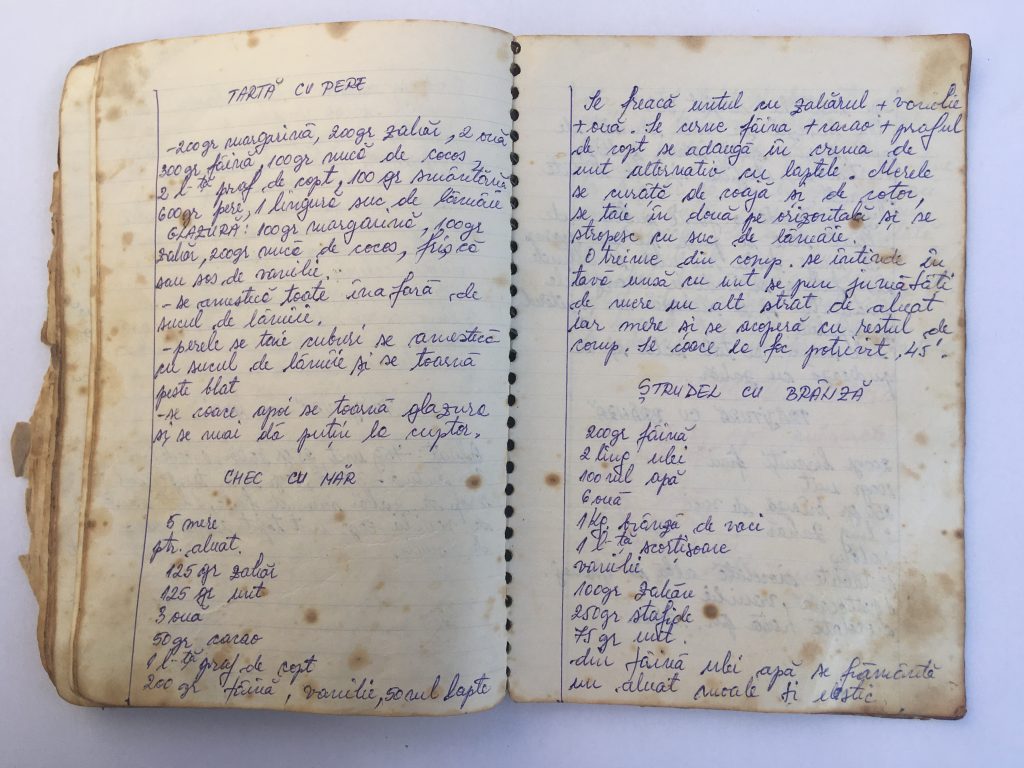 TARTĂ CU PERE
-200gr margarină, 200gr zahăr, 2 ouă
300gr făină, 100gr nucă de cocos,
2 l-țe praf de copt, 100 gr smântână
600gr pere, 1 lingură suc de lămâie
GLAZURA: 100gr margarină, 100gr
zahăr, 200gr nucă de cocos, frișcă
sau sos de vanilie.
- se amestică toate în afară de
sucul de lămîie.
- perele se taie cuburi se amestică
cu sucul de lămîie și se toarnă
peste blat
- se coace apoi se toarnă glazura
și se mai dă puțin la cuptor.
CHEC CU MĂR
5 mere
ptr. aluat.
125 gr zahăr
125 gr unt
3 ouă
50gr cacao
1 l-ță praf de copt
200 gr făină, vanilie, 50ml lapte
Se freacă untul cu zahărul + vanilie
+ouă. Se cerne făina + cacao + praful
de copt se adaugă în crema de
unt alternativ cu laptele. Merele
se curată de coajă și de cotor,
se taie în două pe orizontală și se
stropesc cu suc de lămâie.
O treime din comp. se întinde în
tavă unsă cu unt se pun jumătăți
de mere un alt strat de aluat
iar mere și se acoperă cu restul de
comp. Se coace la foc potrivit 45'.
ȘTRUDEL CU BRÂNZĂ
200gr făină
2 ling ulei
100 ml apă
6 ouă
1 Kg. brânză de vaci
1 l-ță scorțișoare
vanilie
100gr zahăr
250gr stafide
75 gr unt.
din făină ulei apă se frământă
un aluat moale și elastic